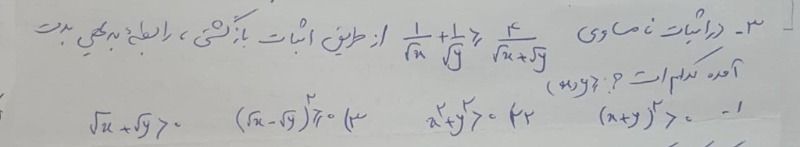 ۳- در اثبات نامساوی 1/√x + 1/√y ≥ ۴/(√x+√y) از طریق اثبات بازگشتی، رابطهٔ بدیهی بدست
آمده کدام است؟ (x,y>
۱- (x+y)^۲ > ۰ ۲) x^۲+y^۲ > ۰ ۳) (√x-√y)^۲ ≥ ۰ √x+√y > ۰